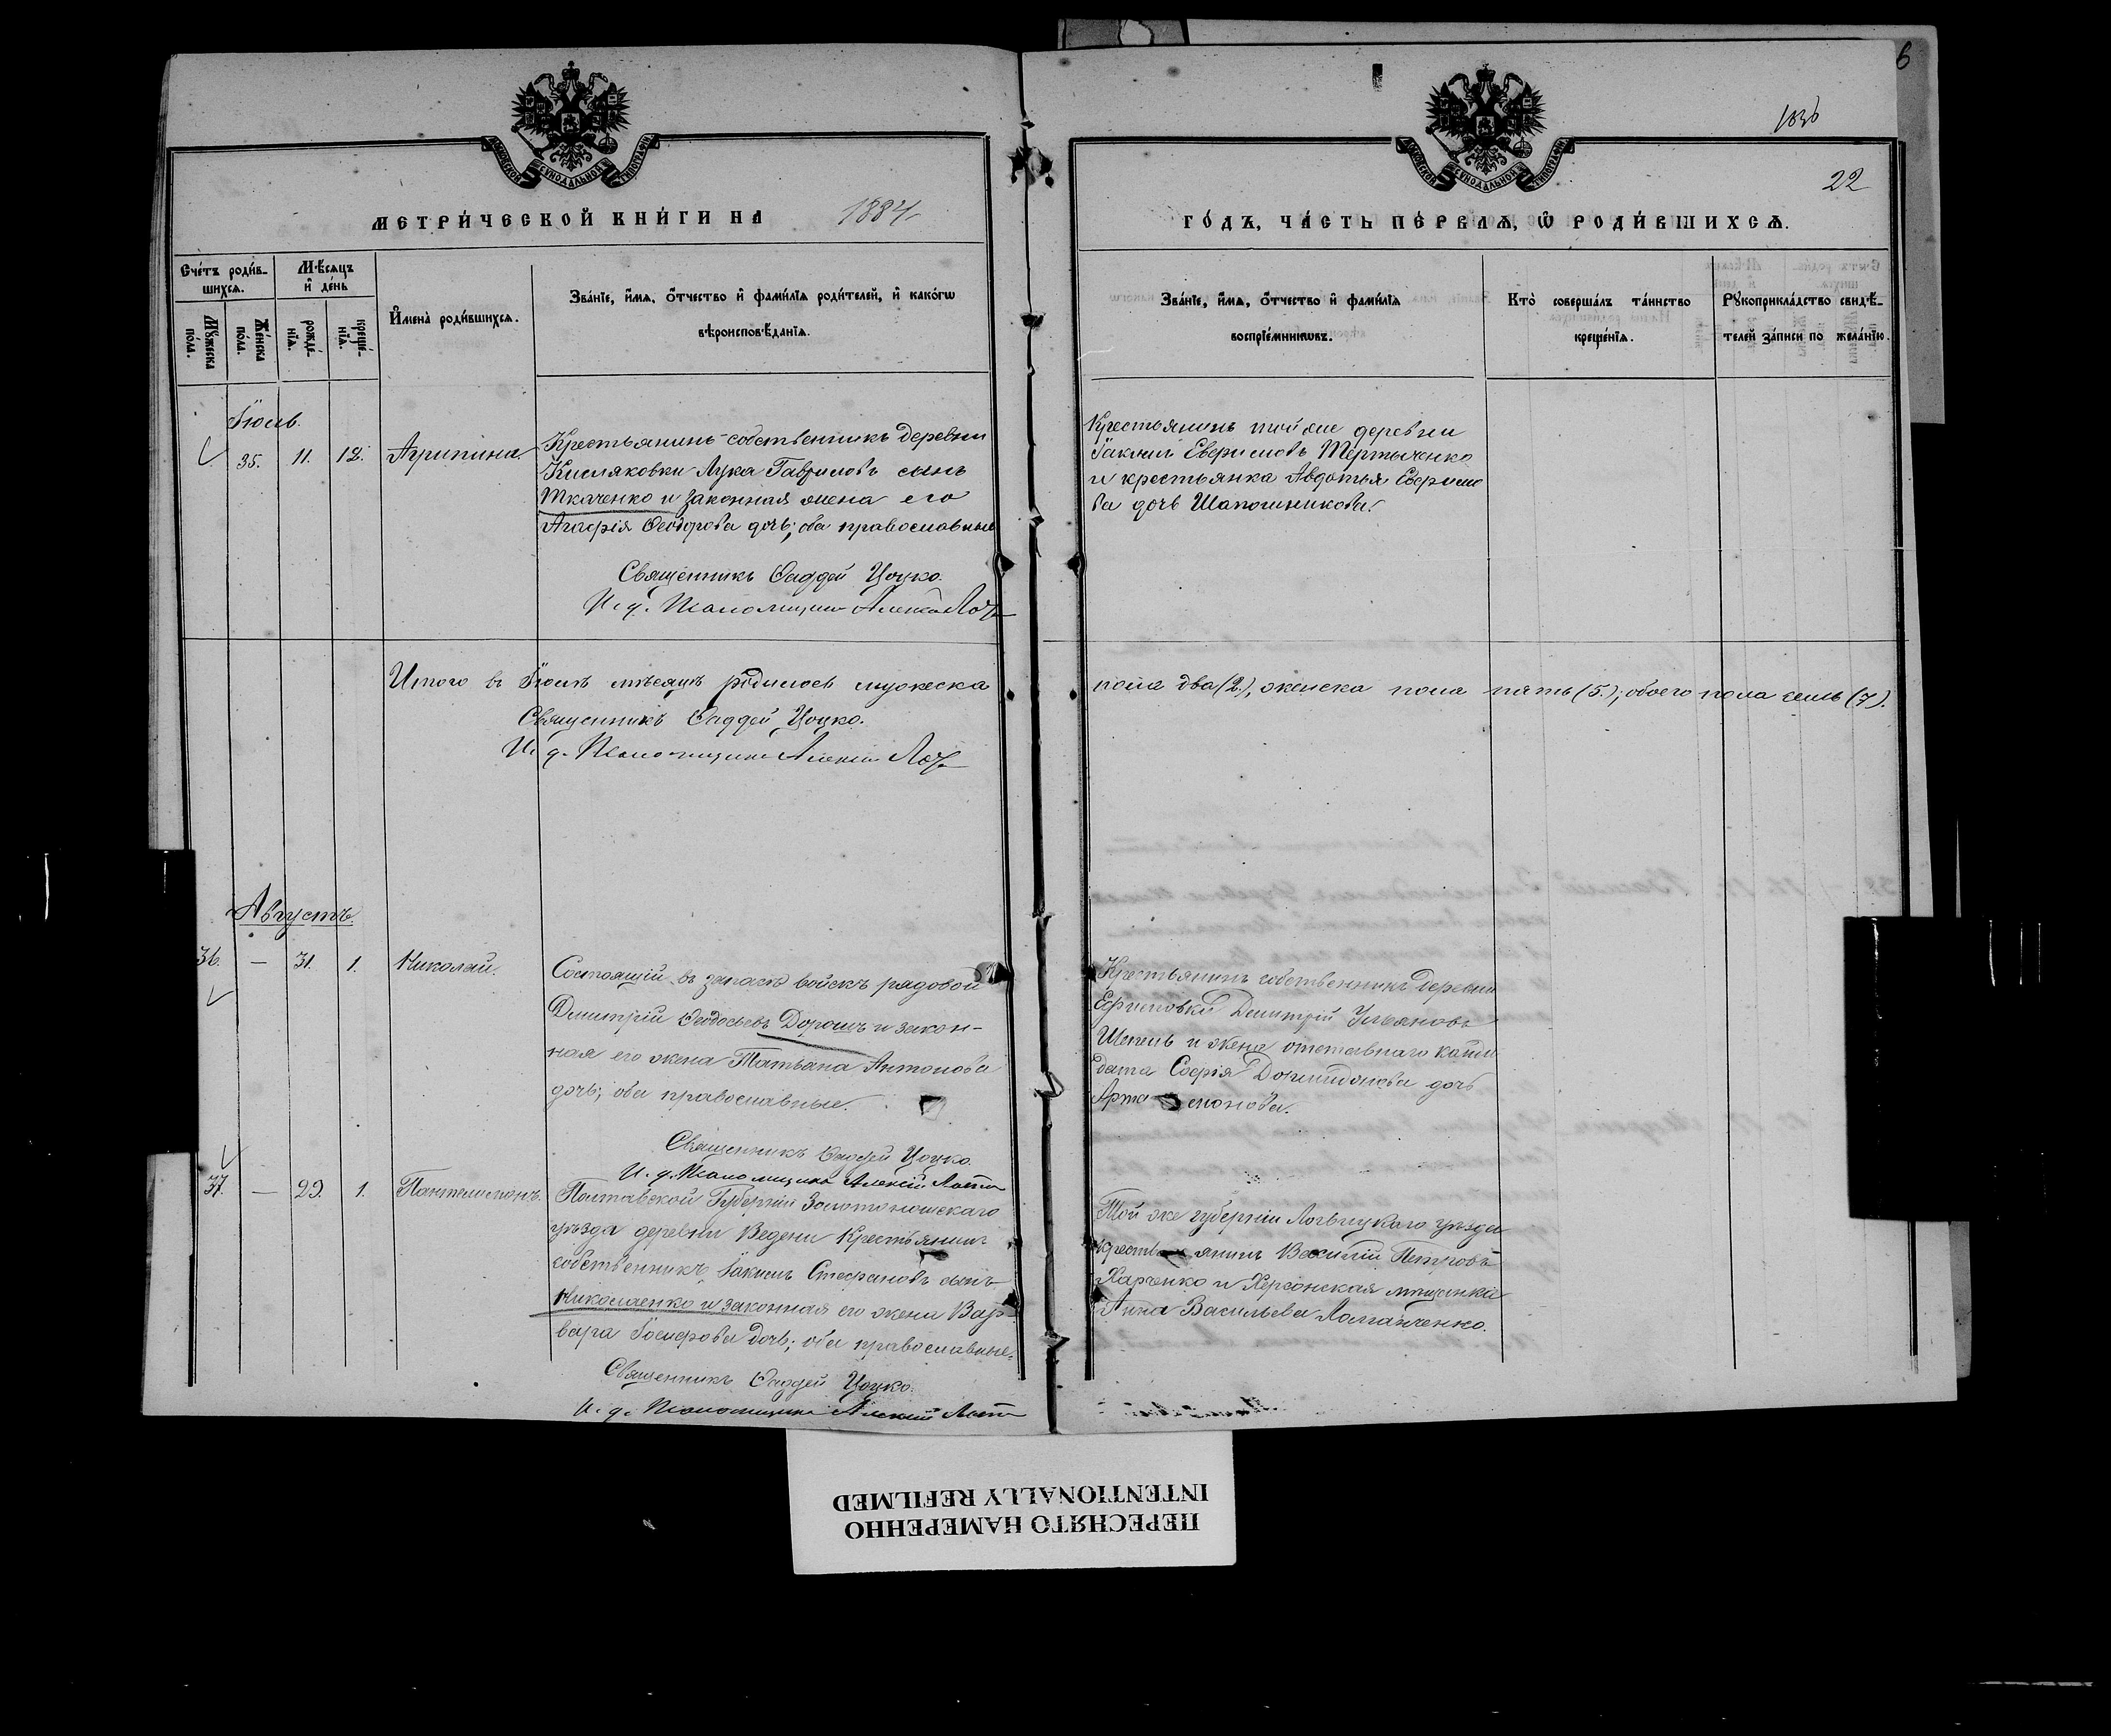 6
1036
22
МОСКОВСКОЙ СѴНОДАЛЬНОЙ ТИПОГРАФІИ
МОСКОВСКОЙ СѴНОДАЛЬНОЙ ТИПОГРАФІИ
МЕТРИ́ЧЕСКОЙ КНИ́ГИ НА 1884
ГО́ДЪ, ЧА́СТЬ ПЕ́РВАѦ, Ѡ҆ РОДИ́ВШИХСѦ.
Сче́тъ роди́в-
шихсѧ.
Мѣ́сѧцъ
и҆ де́нь
Мꙋ́жеска
по́ла.
Же́нска
по́ла.
рожде́-
нїѧ.
креще́-
нїѧ.
И҆мена̀ роди́вшихсѧ.
Зва́нїе, и҆́мѧ, ѻ҆́тчество и҆ фами́лїѧ роди́телей, и҆ како́гѡ
вѣроисповѣ́данїѧ.
Зва́нїе, и҆́мѧ, ѻ҆́тчество и҆ фами́лїѧ
воспрїе́мникѡвъ.
Кто̀ соверша́лъ та́инство
креще́нїѧ.
Рꙋкоприкла́дство свидѣ́-
телей за́писи по жела́нїю.
Іюль.
35. 11. 12. Агрипина.
Крестьянинъ-собственникъ деревни
Кисляковки Лука Гавриловъ сынъ
Ткаченко и законная жена его
Агафія Ѳеодорова дочь; оба православные
Священникъ Ѳаддей Цоцко.
И. д. Псаломщика Алексей
Крестьянинъ той же деревни
Іакимъ Тертыченко
и крестьянка Авдотья
ва дочь Шапошникова.
Итого въ Іюлѣ мѣсяцѣ родилось мужеска
пола два (2.), женска пола пять (5.); обоего пола семь (7).
Священникъ Ѳаддей Цоцко.
И. д. Псаломщика Алексей
Августъ.
36. — 31. 1. Николай.
Состоящій въ запасѣ войскъ рядовой
Димитрій Ѳеодосьевъ Дорошъ и закон-
ная его жена Татьана Антонова
дочь; оба православные.
Священникъ Ѳаддей Цоцко.
И. д. Псаломщика Алексій
Крестьянинъ собственникъ деревни
Ефимовки Димитрій Ульяновъ
Шепель и жена отставнаго
Софія дочь
Арта монова.
37. — 29. 1. Пантелимонъ.
Полтавской Губерніи Золотоношскаго
уѣзда деревни Ведени Крестьянинъ
собственникъ Іакимъ Стефановъ сынъ
Николаенко и законная его жена Вар-
вара Іосифова дочь; оба православные.
Священникъ Ѳаддей Цоцко.
И. д. Псаломщика Алексій
Той же губерніи Лохвицкаго уѣзда
крестьянинъ Василій Петровъ
Харченко и Херсонская мѣщанка
Анна Васильева Ломанченко.
ПЕРЕСНЯТО НАМЕРЕННО
INTENTIONALLY REFILMED